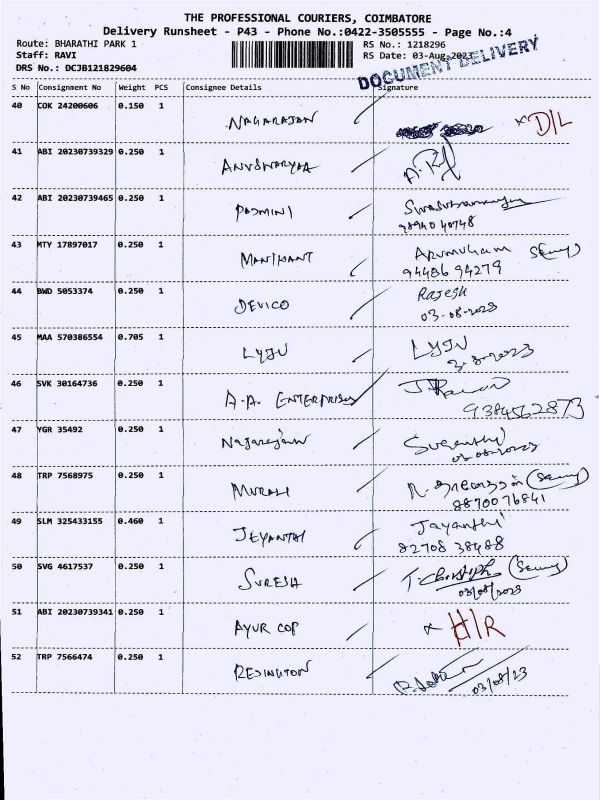 THE PROFESSIONAL COURIERS, COIMBATORE
Delivery Runsheet - P43 - Phone No.:0422-3505555 - Page No.:4
Route: BHARATHI PARK 1 RS No.: 1218296
Staff: RAVI RS Date: 03-Aug-2023
DRS No.: DCJB121829604
DOCUMENT DELIVERY
S No Consignment No Weight PCS Consignee Details Signature
40 COK 24200606 0.150 1 NAGARAJAN x D/L
41 ABI 20230739329 0.250 1
42 ABI 20230739465 0.250 1 PADMINI
98940 40748
43 MTY 17897017 0.250 1 MANIKANT Arumugam
94486 94279
44 BWD 5053374 0.250 1 DEVICO Rajesh
03-08-2023
45 MAA 570386554 0.705 1 LYJU LYJU
3-8-2023
46 SVK 30164736 0.250 1 A.A. ENTERPRISES
9384562873
47 YGR 35492 0.250 1 Nagarajan Suganthi
03-08-2023
48 TRP 7568975 0.250 1 MURALI
8870076841
49 SLM 325433155 0.460 1 JEYANTHI Jayanthi
82708 38488
50 SVG 4617537 0.250 1 SURESH
03/08/2023
51 ABI 20230739341 0.250 1 AYUR COP x H/R
52 TRP 7566474 0.250 1 REDINGTON
03/08/23